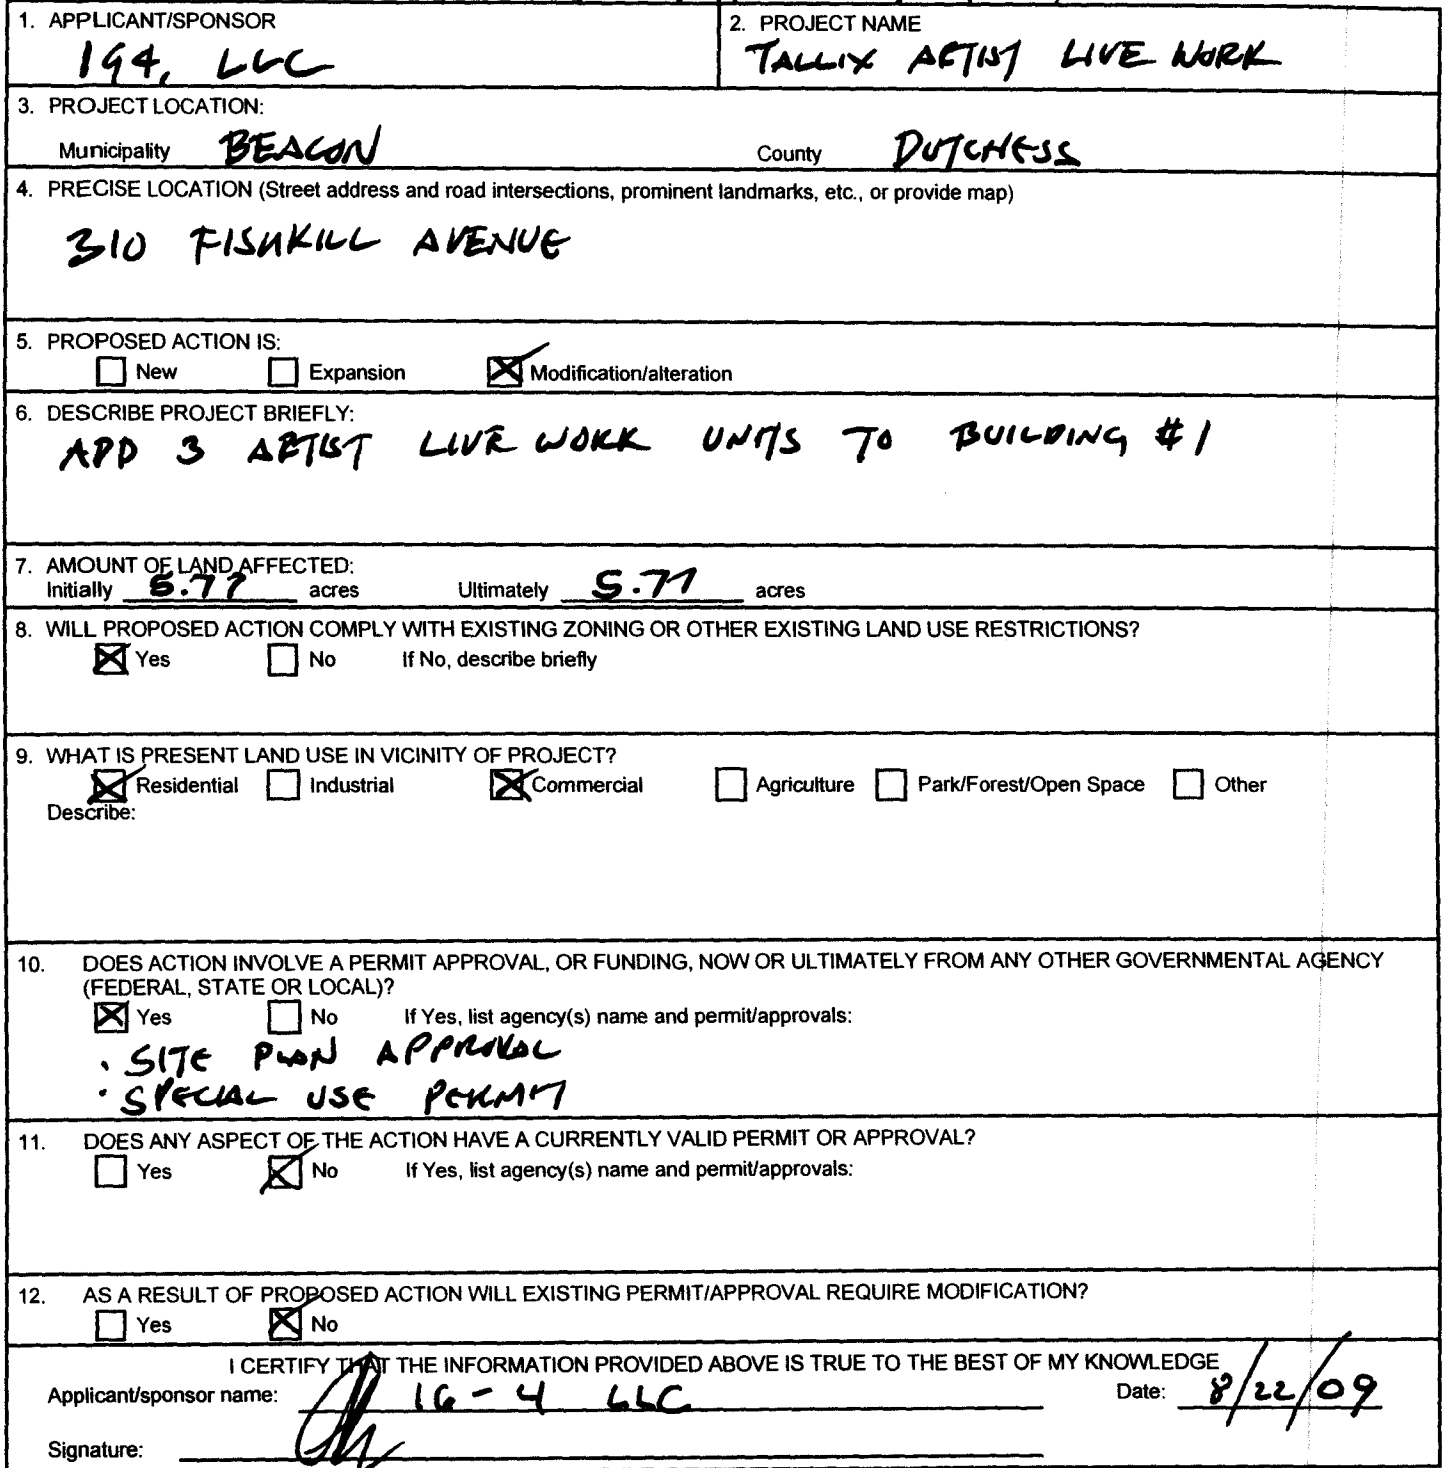 1. APPLICANT/SPONSOR
164, LLC
2. PROJECT NAME
TALLIX ARTIST LIVE WORK
3. PROJECT LOCATION:
Municipality BEACON County DUTCHESS
4. PRECISE LOCATION (Street address and road intersections, prominent landmarks, etc., or provide map)
310 FISHKILL AVENUE
5. PROPOSED ACTION IS:
New Expansion Modification/alteration
6. DESCRIBE PROJECT BRIEFLY:
ADD 3 ARTIST LIVE WORK UNITS TO BUILDING #1
7. AMOUNT OF LAND AFFECTED:
Initially 5.77 acres Ultimately 5.77 acres
8. WILL PROPOSED ACTION COMPLY WITH EXISTING ZONING OR OTHER EXISTING LAND USE RESTRICTIONS?
Yes No If No, describe briefly
9. WHAT IS PRESENT LAND USE IN VICINITY OF PROJECT?
Residential Industrial Commercial Agriculture Park/Forest/Open Space Other
Describe:
10. DOES ACTION INVOLVE A PERMIT APPROVAL, OR FUNDING, NOW OR ULTIMATELY FROM ANY OTHER GOVERNMENTAL AGENCY
(FEDERAL, STATE OR LOCAL)?
Yes No If Yes, list agency(s) name and permit/approvals:
· SITE PLAN APPROVAL
· SPECIAL USE PERMIT
11. DOES ANY ASPECT OF THE ACTION HAVE A CURRENTLY VALID PERMIT OR APPROVAL?
Yes No If Yes, list agency(s) name and permit/approvals:
12. AS A RESULT OF PROPOSED ACTION WILL EXISTING PERMIT/APPROVAL REQUIRE MODIFICATION?
Yes No
I CERTIFY THAT THE INFORMATION PROVIDED ABOVE IS TRUE TO THE BEST OF MY KNOWLEDGE
Applicant/sponsor name: 16-4 LLC Date: 8/22/09
Signature: